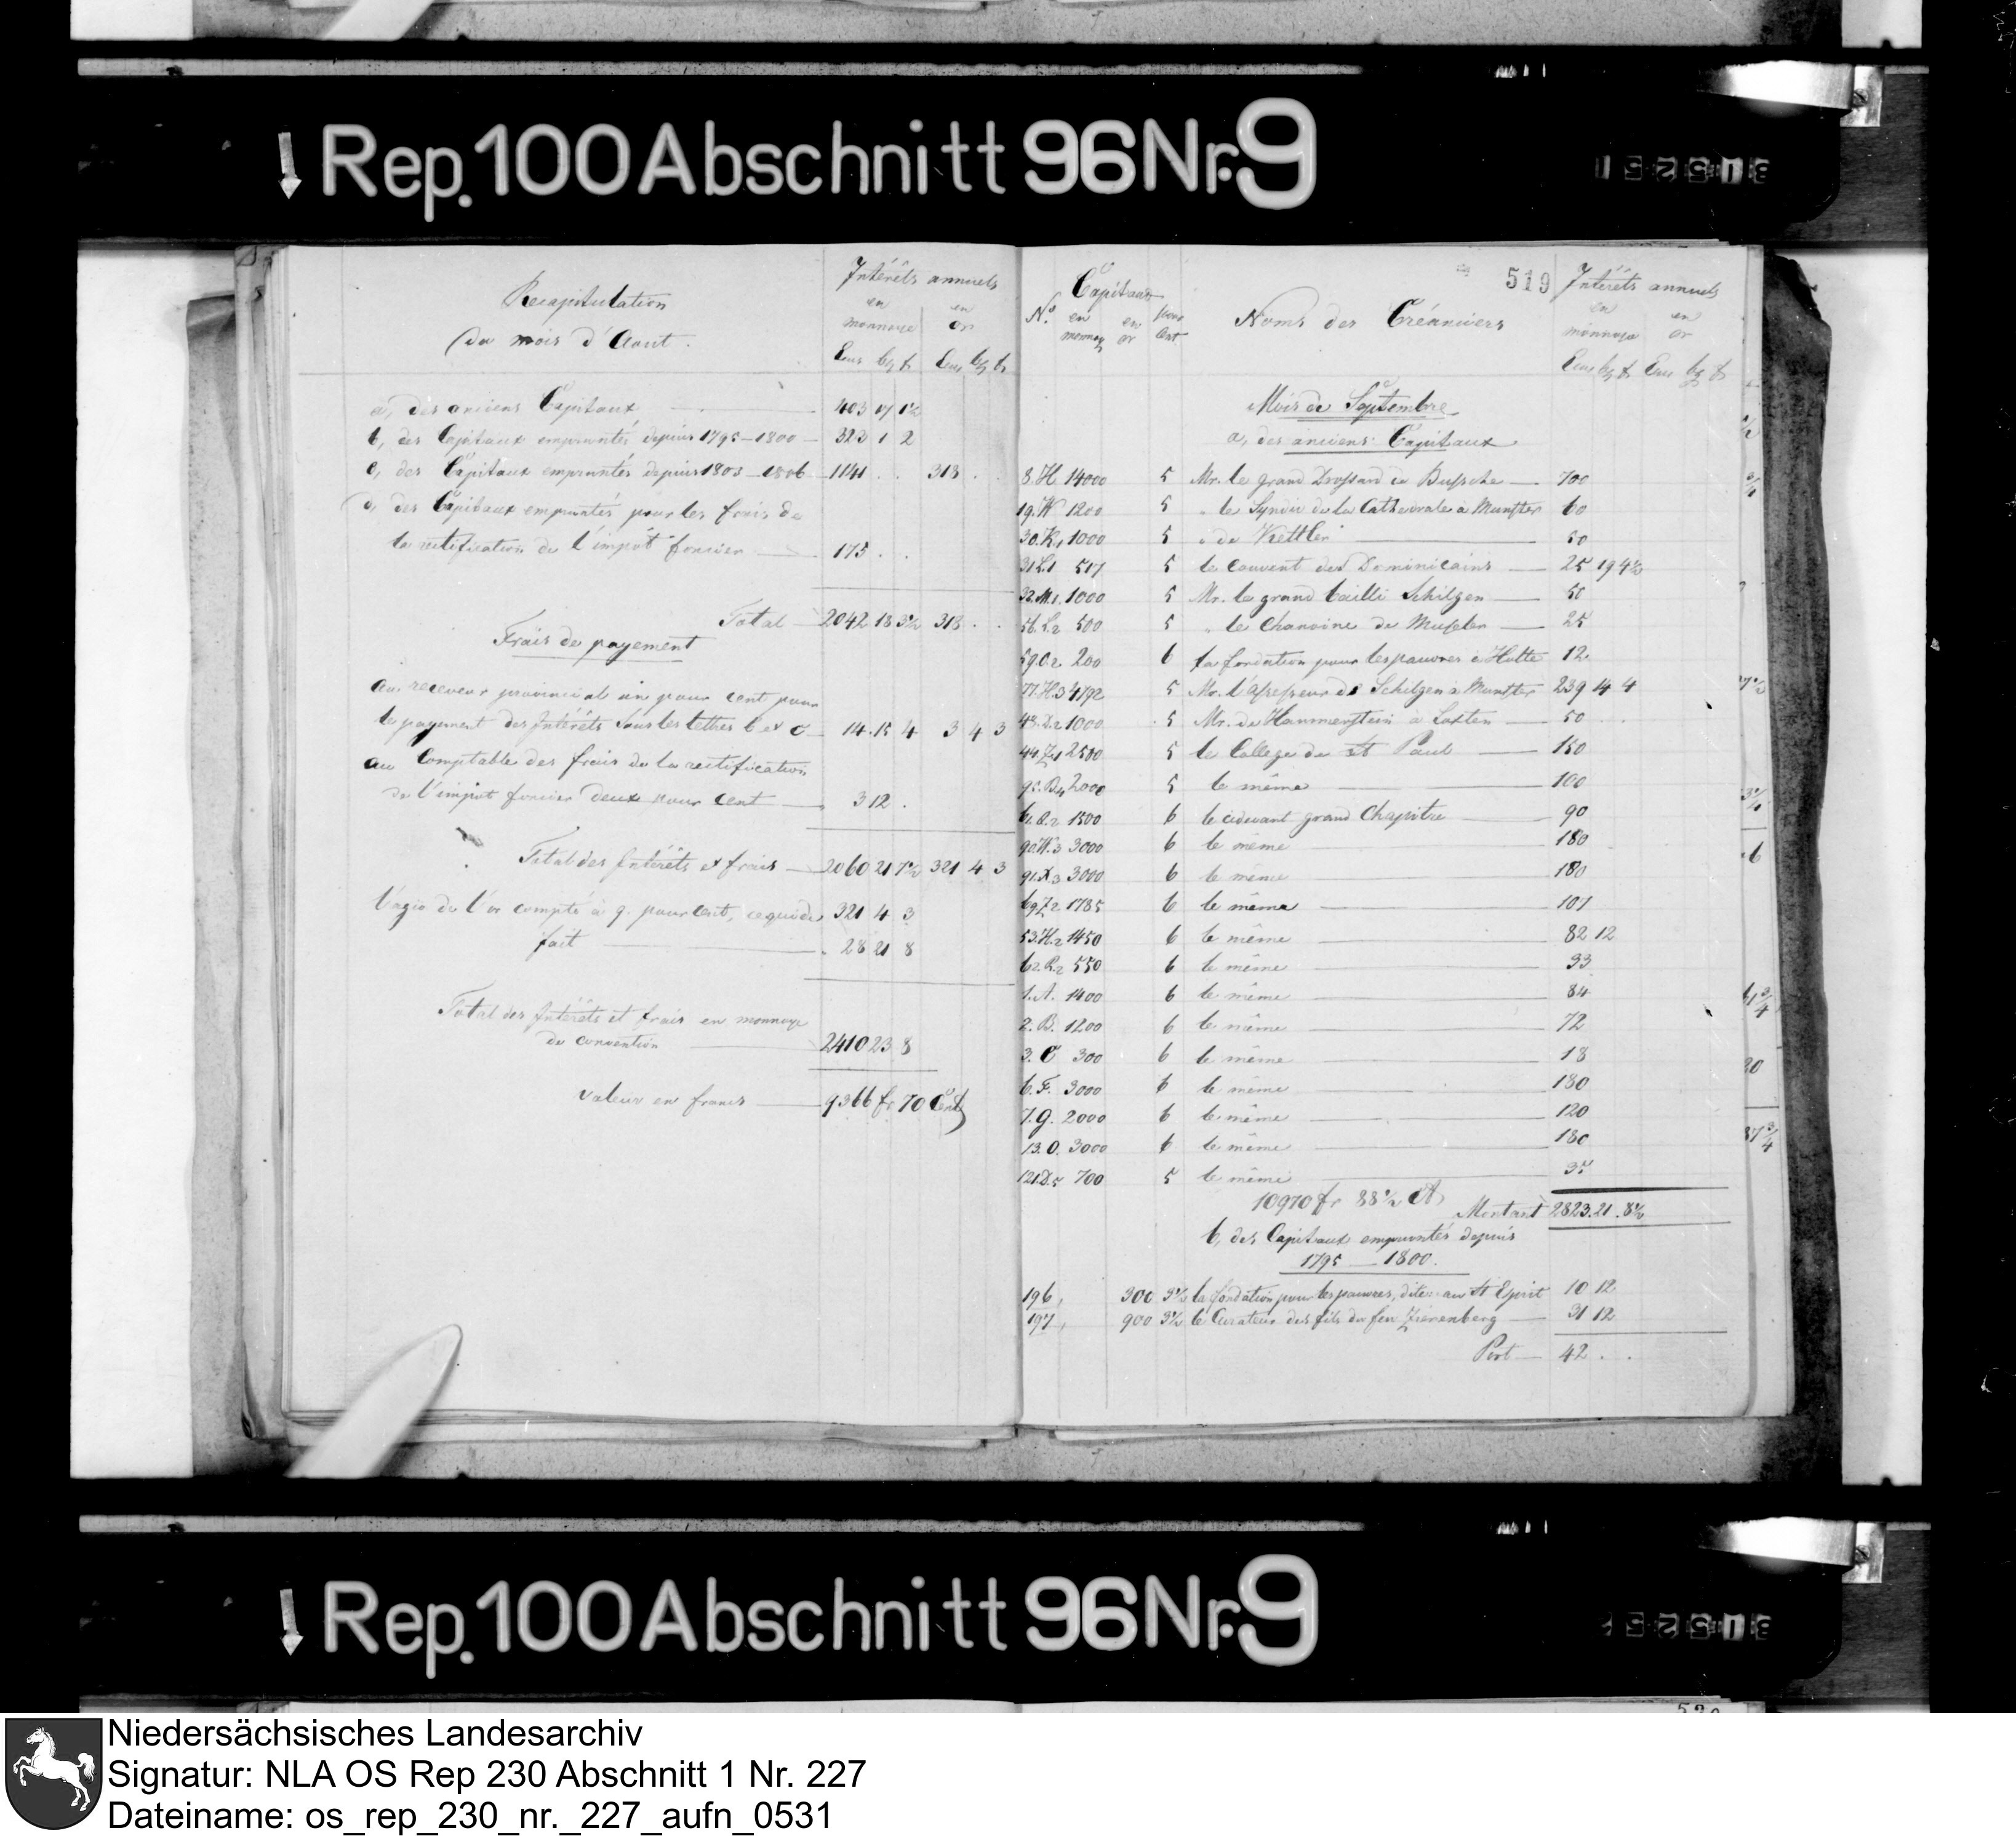 Rep. 100 Abschnitt 96 Nr. 9
Recapitulation
du mois d'Aout.
Intérêts annuels
en monnoye
en or
a, des anciens Capitaux 403 17 1½
b, des Capitaux empruntés depuis 1795-1800 323 1 2
c, des Capitaux empruntés depuis 1803-1806 1141 . . 318 . .
d, des Capitaux empruntés pour les frais de
la rectification de l'impôt foncier 175 . .
Total 2042 18 3½ 318 . .
Frais de payement
au receveur provincial un pour cent pour
le payement des Intérêts sous les lettres b et c 14. 15 4 3 4 3
au Comptable des frais de la rectification
de l'impôt foncier deux pour cent 3 12 .
Total des Intérêts et frais 2060 21 7½ 321 4 3
l'agio de l'or compté à 9. pour Cent, 321 4 3
fait 28 21 8
Total des Intérêts et frais en monnoye
de convention 2410 23 8
valeur en francs 9366 fr 70 Cent
519
Capitaux
Nº en monnoy en or pour Cent
Noms des Créanciers
Intérêts annuels
en monnoye
en or
Mois de Septembre
a, des anciens Capitaux
8. H 14000 5 Mr. le grand Drossard de Bussche 700
19. W 1200 5 " le Syndic de la Cathedrale à Munster 60
30. K1 1000 5 " de Kettler 50
31 L1 517 5 le Couvent des Dominicains 25 19 4½
32. M1. 1000 5 Mr. le grand bailli Schilgen 50
56. L2 500 5 " le Chanoine de 25
59. O2 200 6 la fondation pour les pauvres à Holte 12
77. H3 4792 5 Mr. l'assesseur de Schilgen à Munster 239 14 4
48. D2 1000 5 Mr. de Hammerstein à Loxten 50
44. Z1 2500 5 le College de St Paul 150
95. B4 2000 5 le même 100
61. Q2 1500 6 le cidevant grand Chapitre 90
90. W3 3000 6 le même 180
91. X3 3000 6 le même 180
69 Z2 1785 6 le même 107
53. H2 1450 6 le même 82 12
62. R2 550 6 le même 33
1. A. 1400 6 le même 84
2. B. 1200 6 le même 72
3. C 300 6 le même 18
6. F. 3000 6 le même 180
7. G. 2000 6 le même 120
13. O. 3000 6 le même 180
121. D5 700 5 le même 35
10970 fr 88½ Ct
Montant 2823. 21. 8½
b, des Capitaux empruntés depuis
1795 — 1800.
196, 300 3½ la fondation pour les pauvres, dite au St Esprit 10 12
197, 900 3½ le Curateur des fils du feu Zierenberg 31 12
Port 42 . .
Rep. 100 Abschnitt 96 Nr. 9
Niedersächsisches Landesarchiv
Signatur: NLA OS Rep 230 Abschnitt 1 Nr. 227
Dateiname: os_rep_230_nr._227_aufn_0531